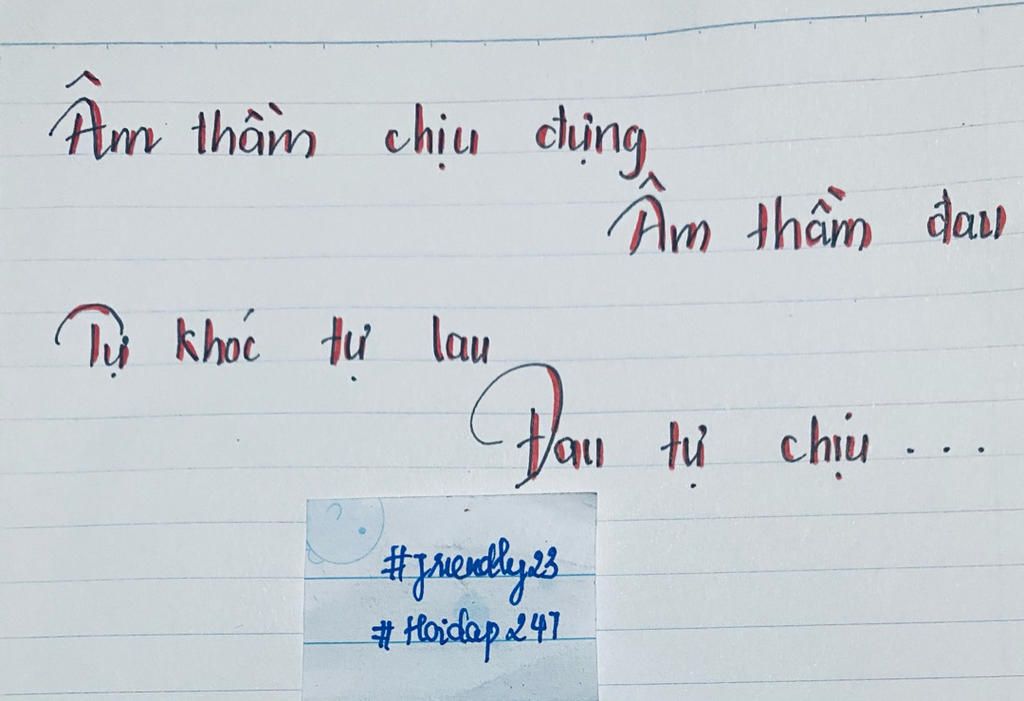 Âm thầm chịu đựng
Âm thầm đau
Tự khóc tự lau
Đau tự chịu...
#friendly23
#Hoidap247